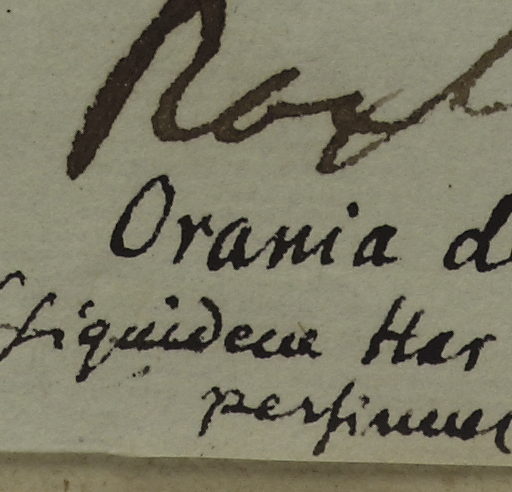 Roxb
Orania d
siquidem Har
persimil